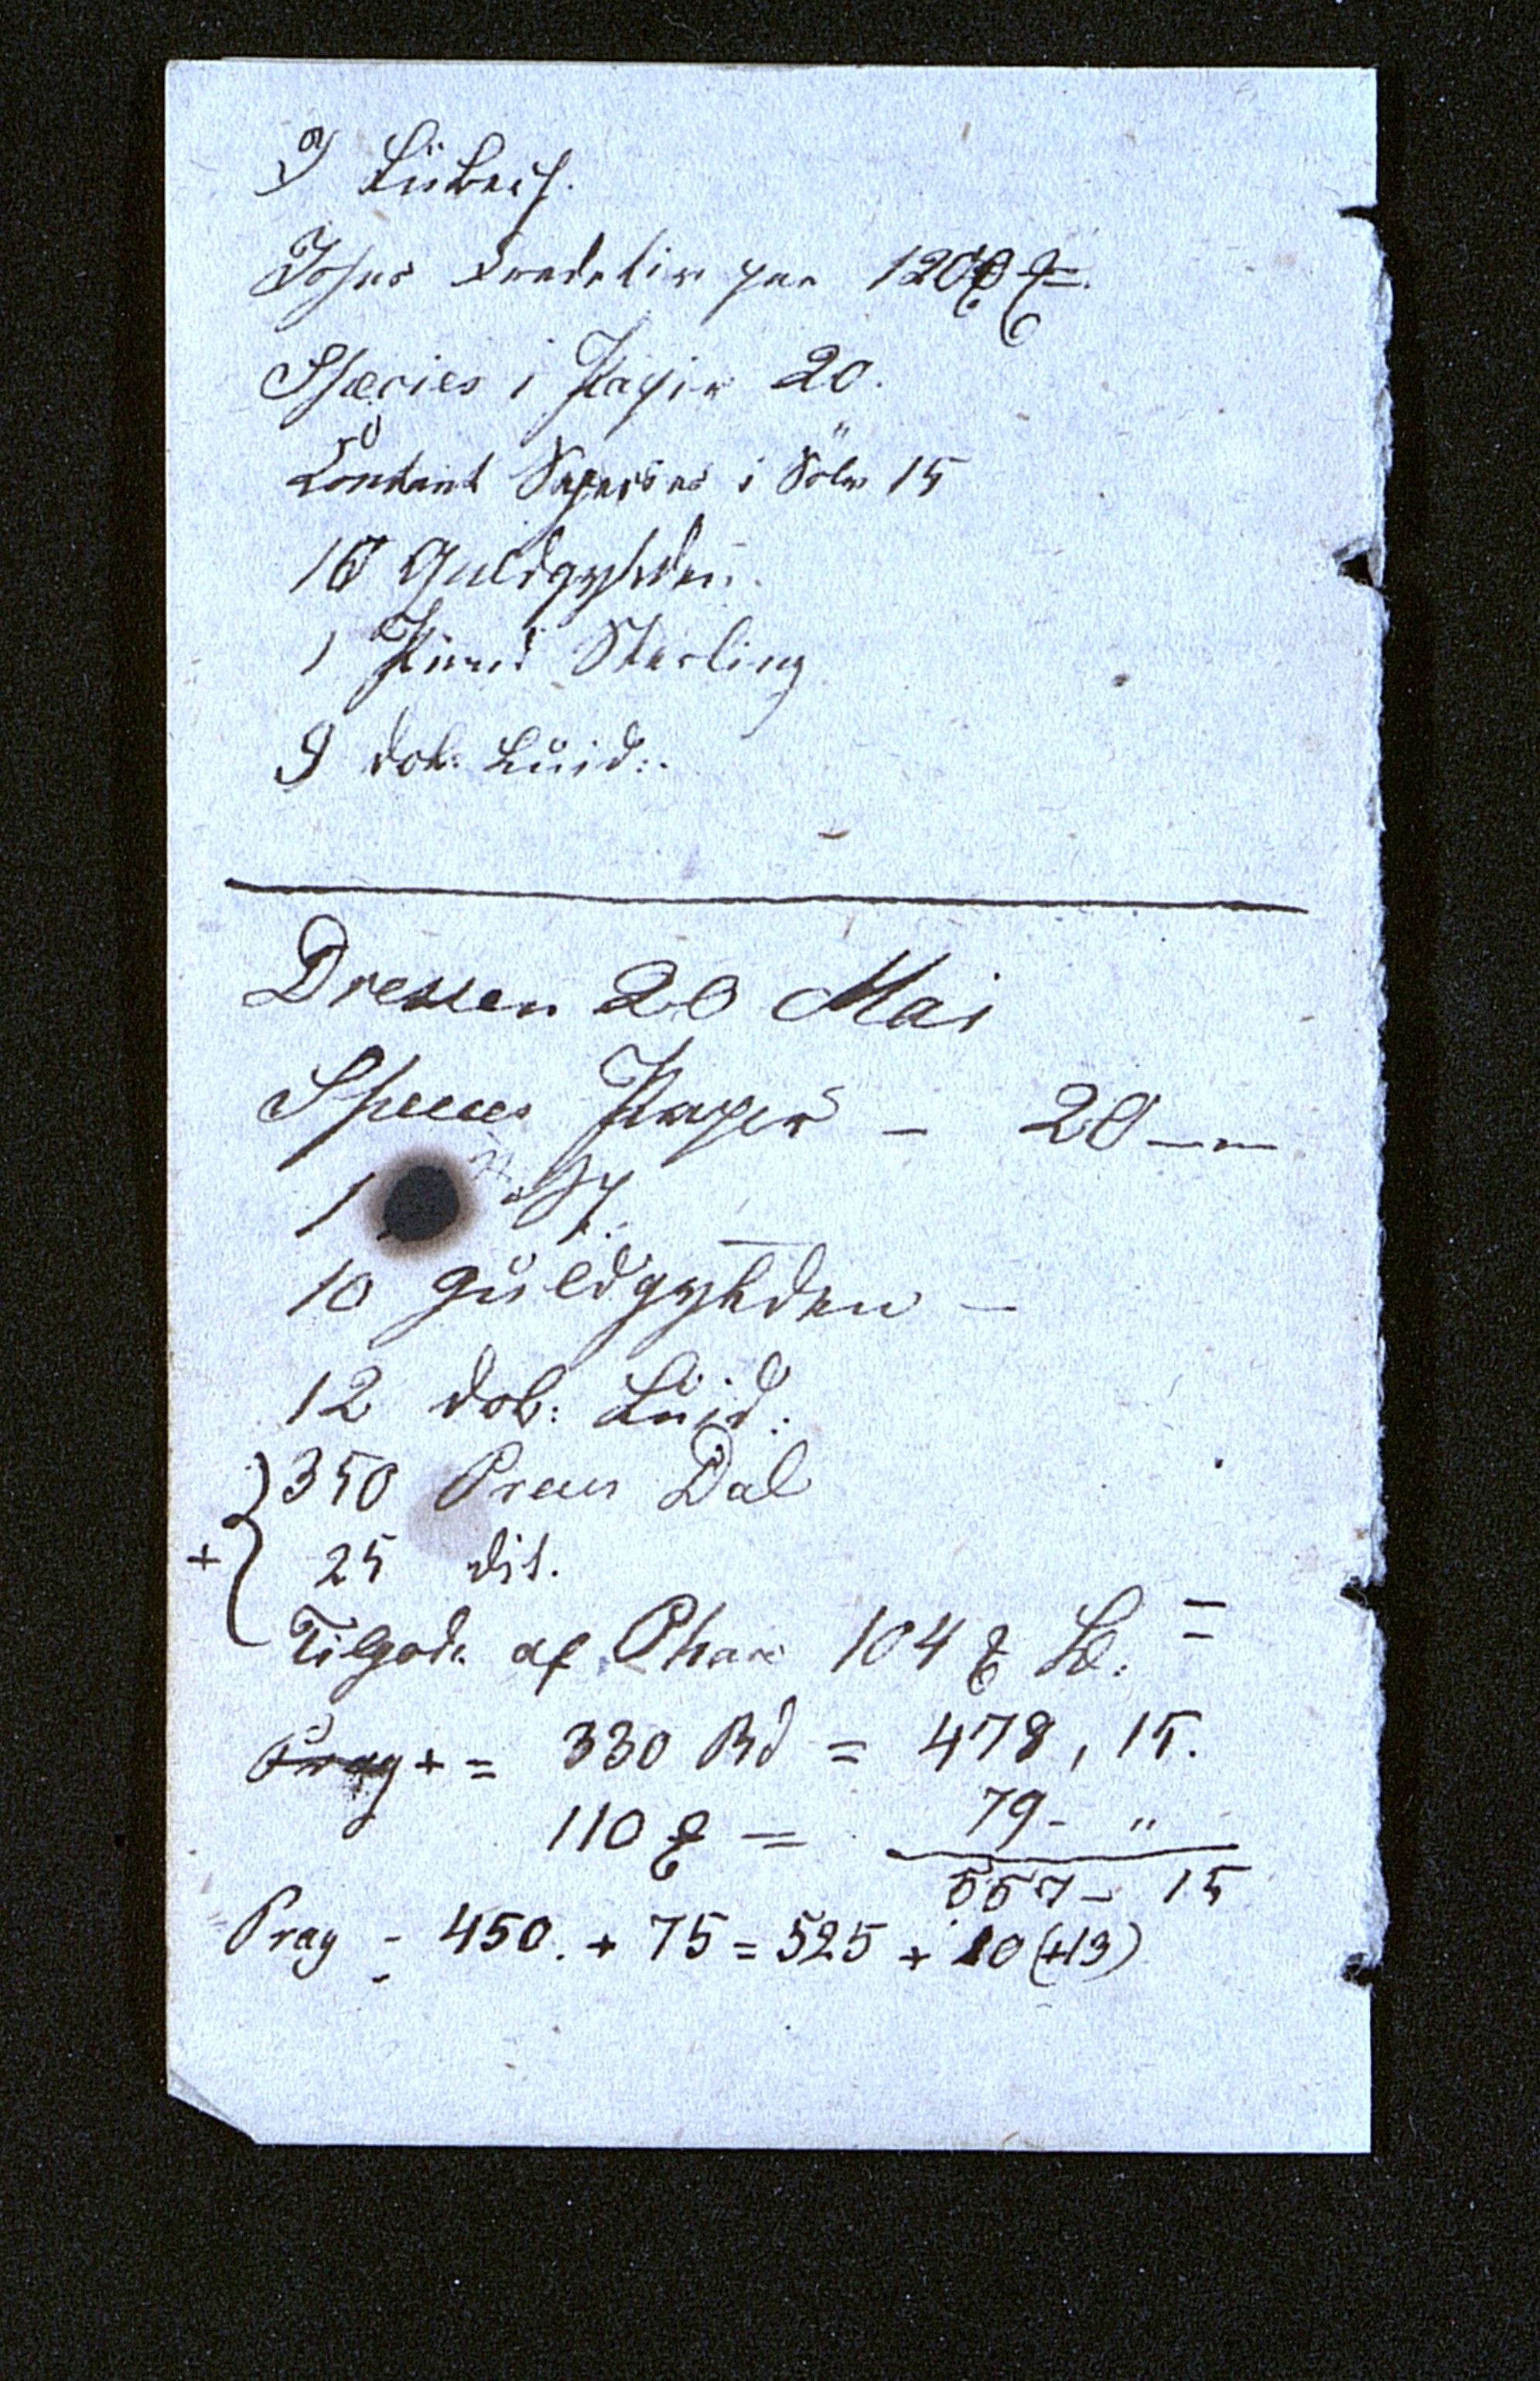 I Lübeck.
Johns Kreditiv paa 1200 ₰.
Species i Papir 20.
Contant Species i Sölv 15
10 Guldgylden.
1 Pund Sterling
9 dob: Luid:.
Dresden 20 Mai
Species Papir - 20 —
1
10 Guldgylden —
12 dob: Luid:
350 Preus Dal
+ 25 dit.
Tilgode af Phar 104 ₰ =
Prag + = 330 Rd = 478, 15.
110 ₰ = 79 - "
557 - 15
Prag = 450. + 75 = 525 + 20 (+13)